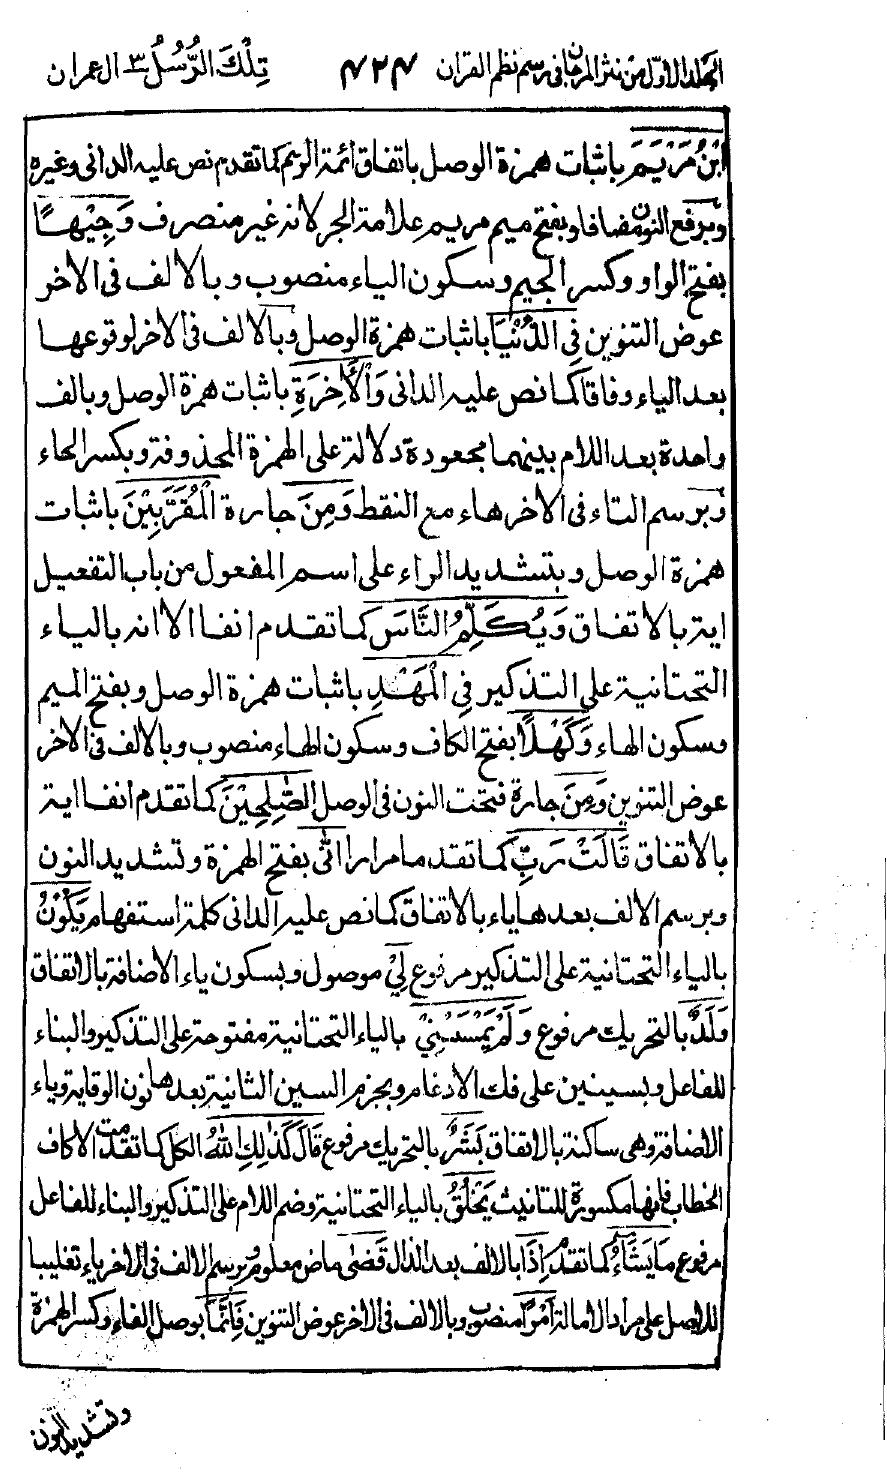 المجلد الاول من نثر المرجان فى رسم نظم القران ٤٢٤ تِلْكَ الرُّسُلُ ٣ ال عمران
ابْنُ مَرْيَمَ باثبات همزة الوصل باتفاق ائمة الرسم كما تقدم نص عليه الدانى وغيره
وبرفع النون مضافا وبفتح ميم مريم علامة الجر لانه غير منصرف وَجِيْهًا
بفتح الواو وكسر الجيم وسكون الياء منصوب وبالالف فى الاخر
عوض التنوين فِى الدُّنْيَا باثبات همزة الوصل وبالالف فى الاخر لوقوعها
بعد الياء وفاقا كما نص عليه الدانى وَالْاٰخِرَةِ باثبات همزة الوصل وبالف
واحدة بعد اللام بينهما مجعودة دلالة على الهمزة المحذوفة وبكسر الخاء
وبرسم التاء فى الاخر هاء مع النقط وَمِنَ جارة الْمُقَرَّبِيْنَ باثبات
همزة الوصل وبتشديد الراء على اسم المفعول من باب التفعيل
اية بالاتفاق وَيُكَلِّمُ النَّاسَ كما تقدم انفا الا انه بالياء
التحتانية على التذكير فِى الْمَهْدِ باثبات همزة الوصل وبفتح الميم
وسكون الهاء وَكَهْلًا بفتح الكاف وسكون الهاء منصوب وبالالف فى الاخر
عوض التنوين وَمِنَ جارة فتحت النون فى الوصل الصّٰلِحِيْنَ كما تقدم انفا اية
بالاتفاق قَالَتْ رَبِّ كما تقدما مرارا اَنّٰى بفتح الهمزة وتشديد النون
وبرسم الالف بعدها ياء بالاتفاق كما نص عليه الدانى كلمة استفهام يَكُوْنُ
بالياء التحتانية على التذكير مرفوع لِيْ موصول وبسكون ياء الاضافة بالاتفاق
وَلَدٌ بالتحريك مرفوع وَلَمْ يَمْسَسْنِيْ بالياء التحتانية مفتوحة على التذكير والبناء
للفاعل وبسينين على فك الادغام وبجزم السين الثانية بعدها نون الوقاية وياء
الاضافة وهى ساكنة بالاتفاق بَشَرٌ بالتحريك مرفوع قَالَ كَذٰلِكِ اللّٰهُ الكل كما تقدمت الا كاف
الخطاب فانها مكسورة للتانيث يَخْلُقُ بالياء التحتانية وضم اللام على التذكير والبناء للفاعل
مرفوع مَا يَشَاءُ كما تقدم اِذَا بالالف بعد الذال قَضٰى ماض معلوم وبرسم الالف فى الاخر ياء تغليبا
للاصل على مراد الامالة اَمْرًا منصوب وبالالف فى الاخر عوض التنوين فَاِنَّمَا بوصل الفاء وكسر الهمزة
وتشديد النون